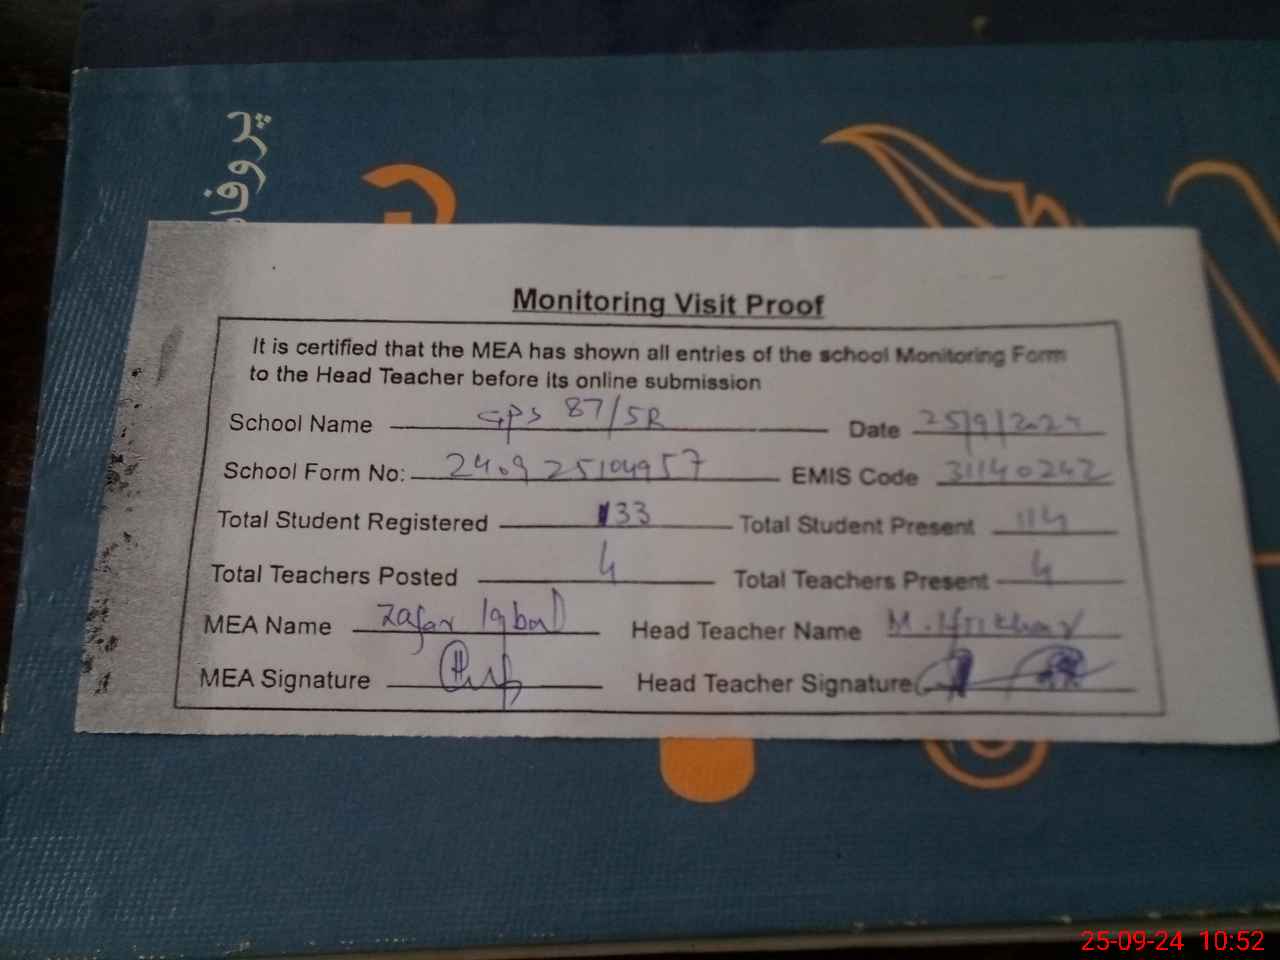 پروفا
Monitoring Visit Proof
It is certified that the MEA has shown all entries of the school Monitoring Form
to the Head Teacher before its online submission
School Name GPS 87/5R Date 25/9/2024
School Form No: 240925104957 EMIS Code 31140242
Total Student Registered 133 Total Student Present 114
Total Teachers Posted 4 Total Teachers Present 4
MEA Name Zafar Iqbal Head Teacher Name M. Iftikhar
MEA Signature Head Teacher Signature
25-09-24 10:52